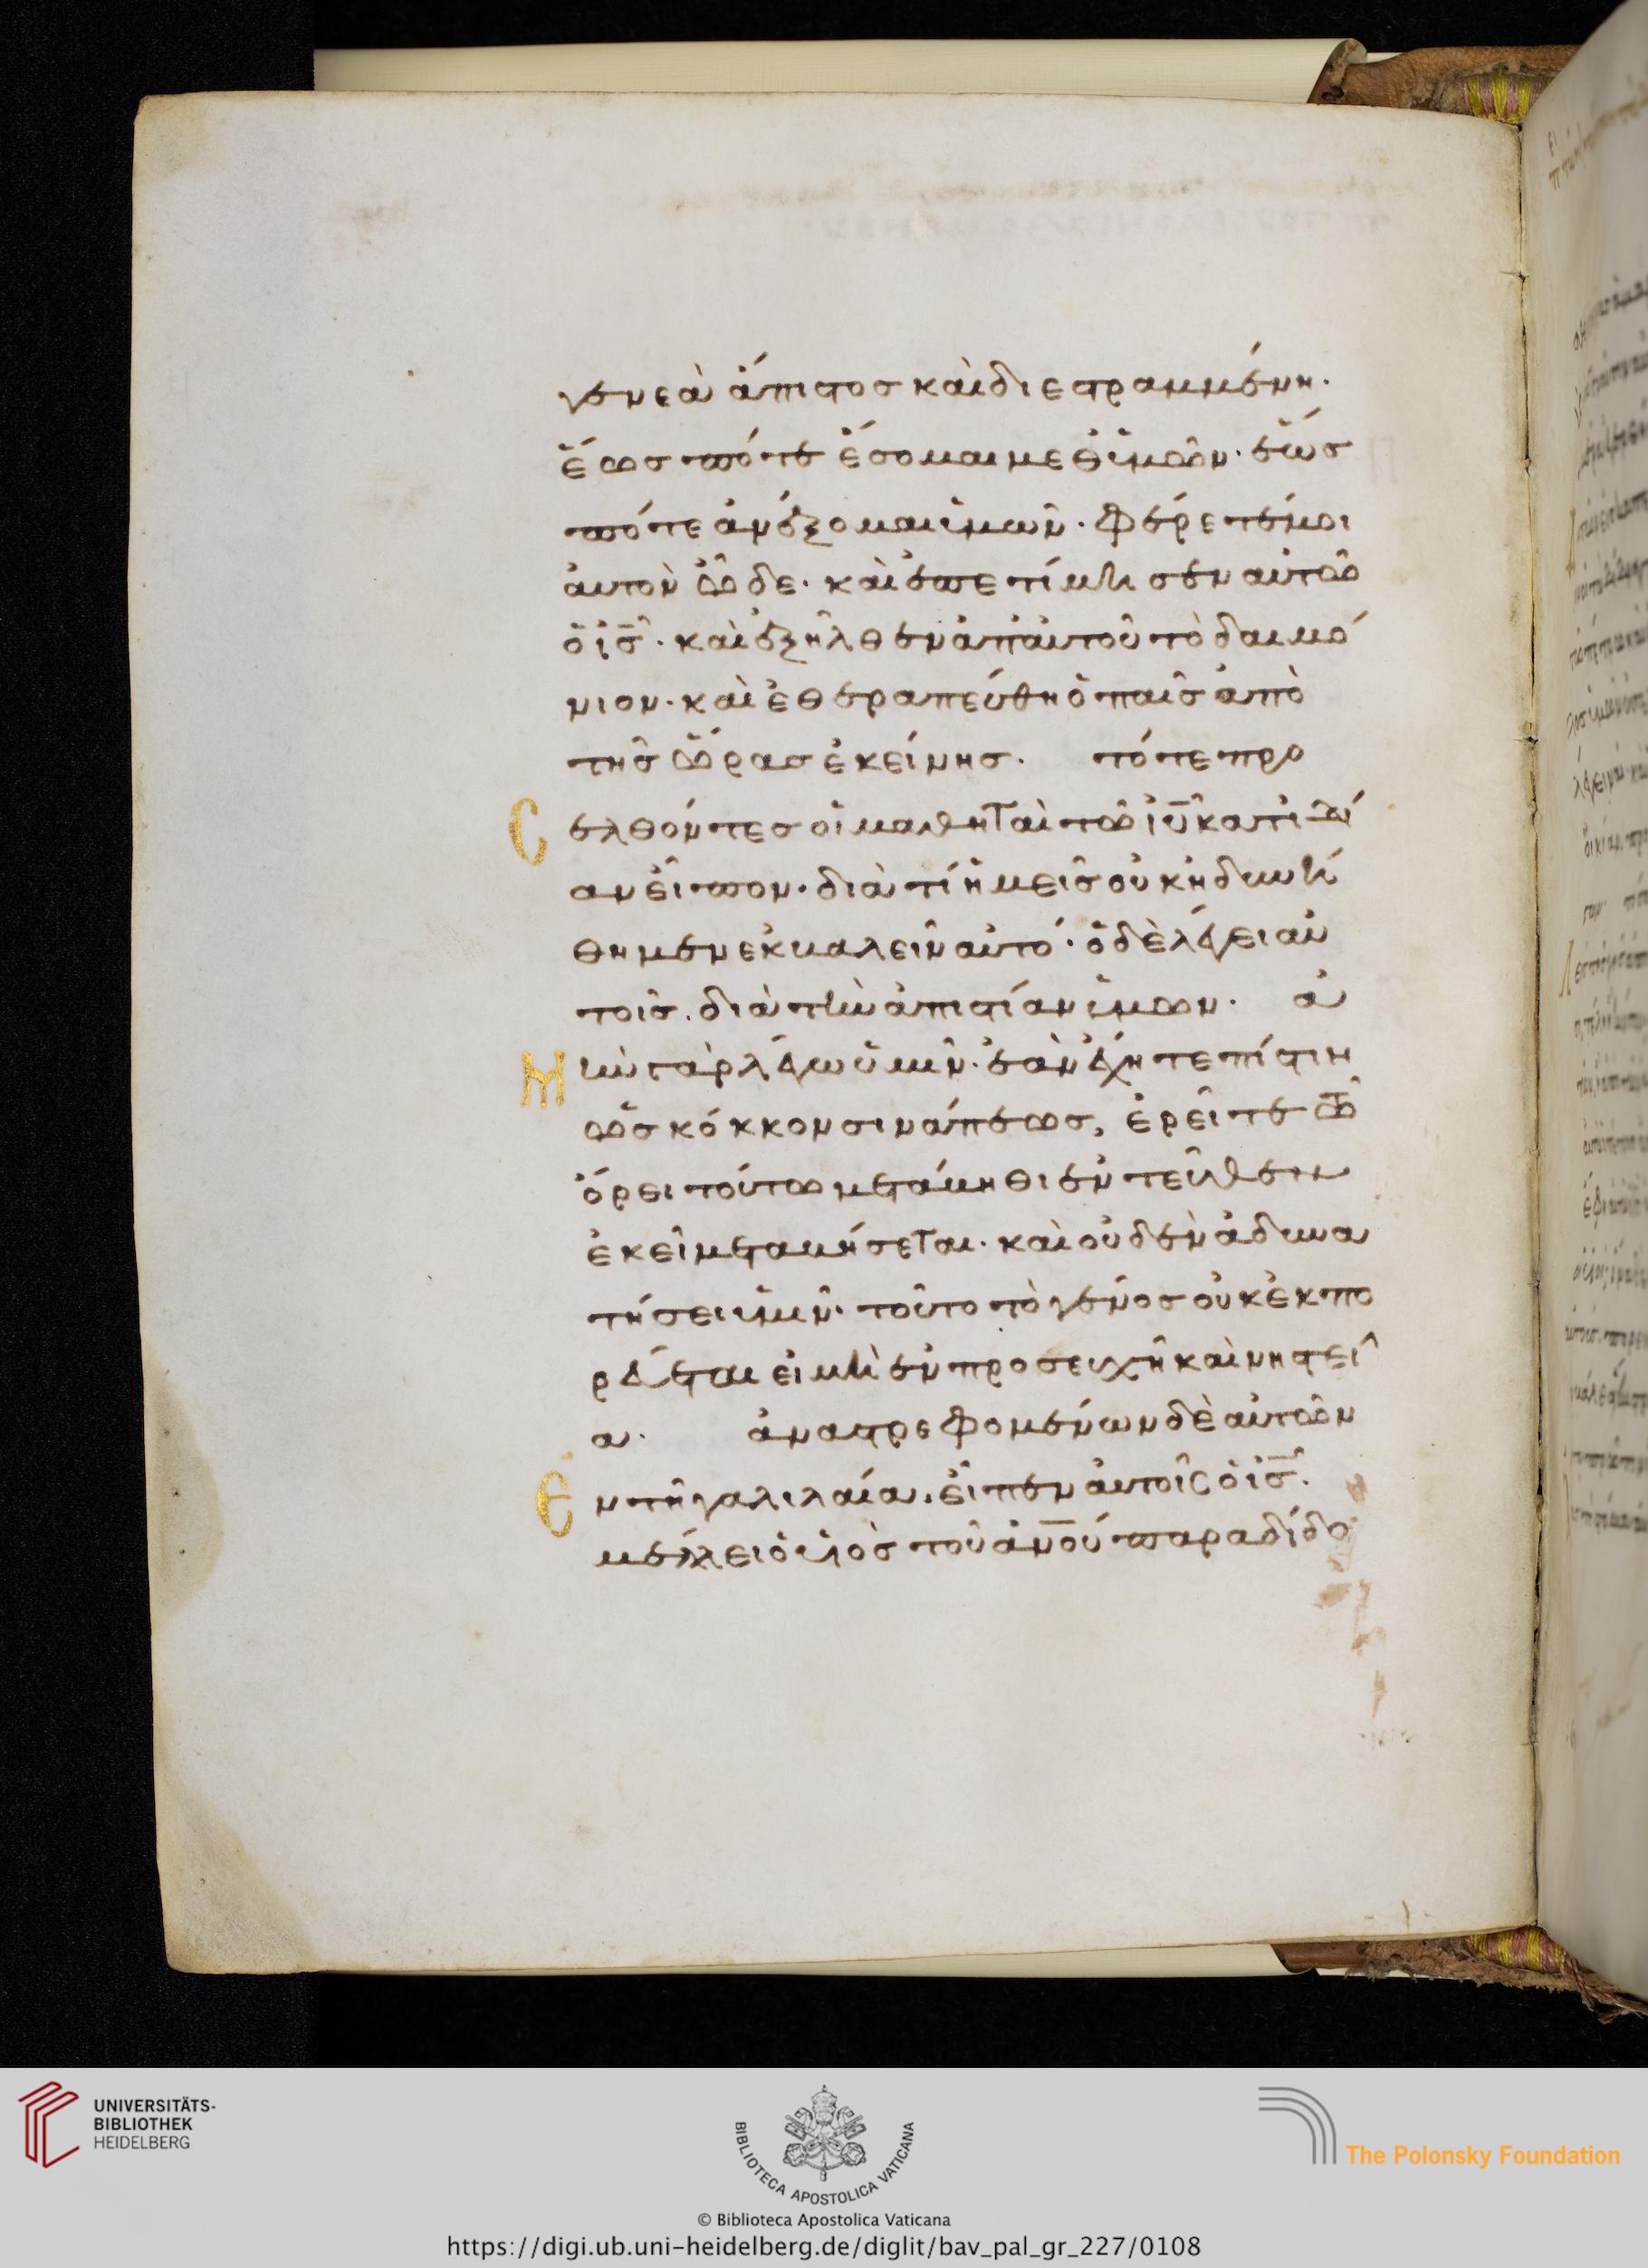 γενεὰ ἄπιστος καὶ διεστραμμένη·
ἕως πότε ἔσομαι μεθ ὑμῶν· ἕως
πότε ἀνέξομαι ὑμῶν· φέρετέ μοι
αὐτὸν ὧδε· καὶ ἐπετίμησεν αὐτῶ
ὁ ις· καὶ ἐξῆλθεν ἀπ αὐτοῦ τὸ δαιμό
νιον· καὶ ἐθεραπεύθη ὁ παῖς ἀπὸ
τῆς ὥρας ἐκείνης· τότε προ
σελθόντες οἱ μαθηταὶ τῶ ιυ κατιδί
αν εἶπον· διὰ τί ἡμεῖς οὐκ ἠδυνή
θημεν ἐκβαλεῖν αὐτό· ὁ δὲ λέγει αὐ
τοῖς. διὰ τὴν ἀπιστίαν ὑμῶν· ἀ
μὴν γὰρ λέγω ὑμῖν· ἐὰν ἔχητε πίστιν
ὡς κόκκον σινάπεως, ἐρεῖτε τῶ
ὄρει τούτω μετάβηθι ἐντεῦθεν
ἐκεῖ μεταβήσεται· καὶ οὐδὲν ἀδυνα
τήσει ὑμῖν· τοῦτο τὸ γένος οὐκ ἐκπο
ρεύεται εἰ μὴ ἐν προσευχῆ καὶ νηστεί
α· ἀναστρεφομένων δὲ αὐτῶν
Εν τῆ γαλιλαία, εἶπεν αὐτοῖς ὁ ις·
μέλλει ὁ υἱὸς τοῦ ανου παραδίδο
UNIVERSITÄTS-
BIBLIOTHEK
HEIDELBERG
BIBLIOTECA APOSTOLICA VATICANA
The Polonsky Foundation
© Biblioteca Apostolica Vaticana
https://digi.ub.uni-heidelberg.de/diglit/bav_pal_gr_227/0108